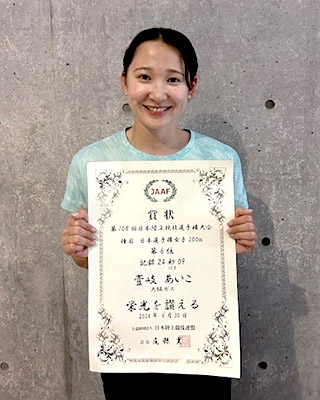 JAAF
賞状
第108回日本陸上競技選手権大会
種目 日本選手権女子 200m
第6位
記録 24秒09
壹岐 あいこ
大阪ガス
栄光を讃える
2024年 6月30日
公益財団法人 日本陸上競技連盟
会長 尾縣 貢